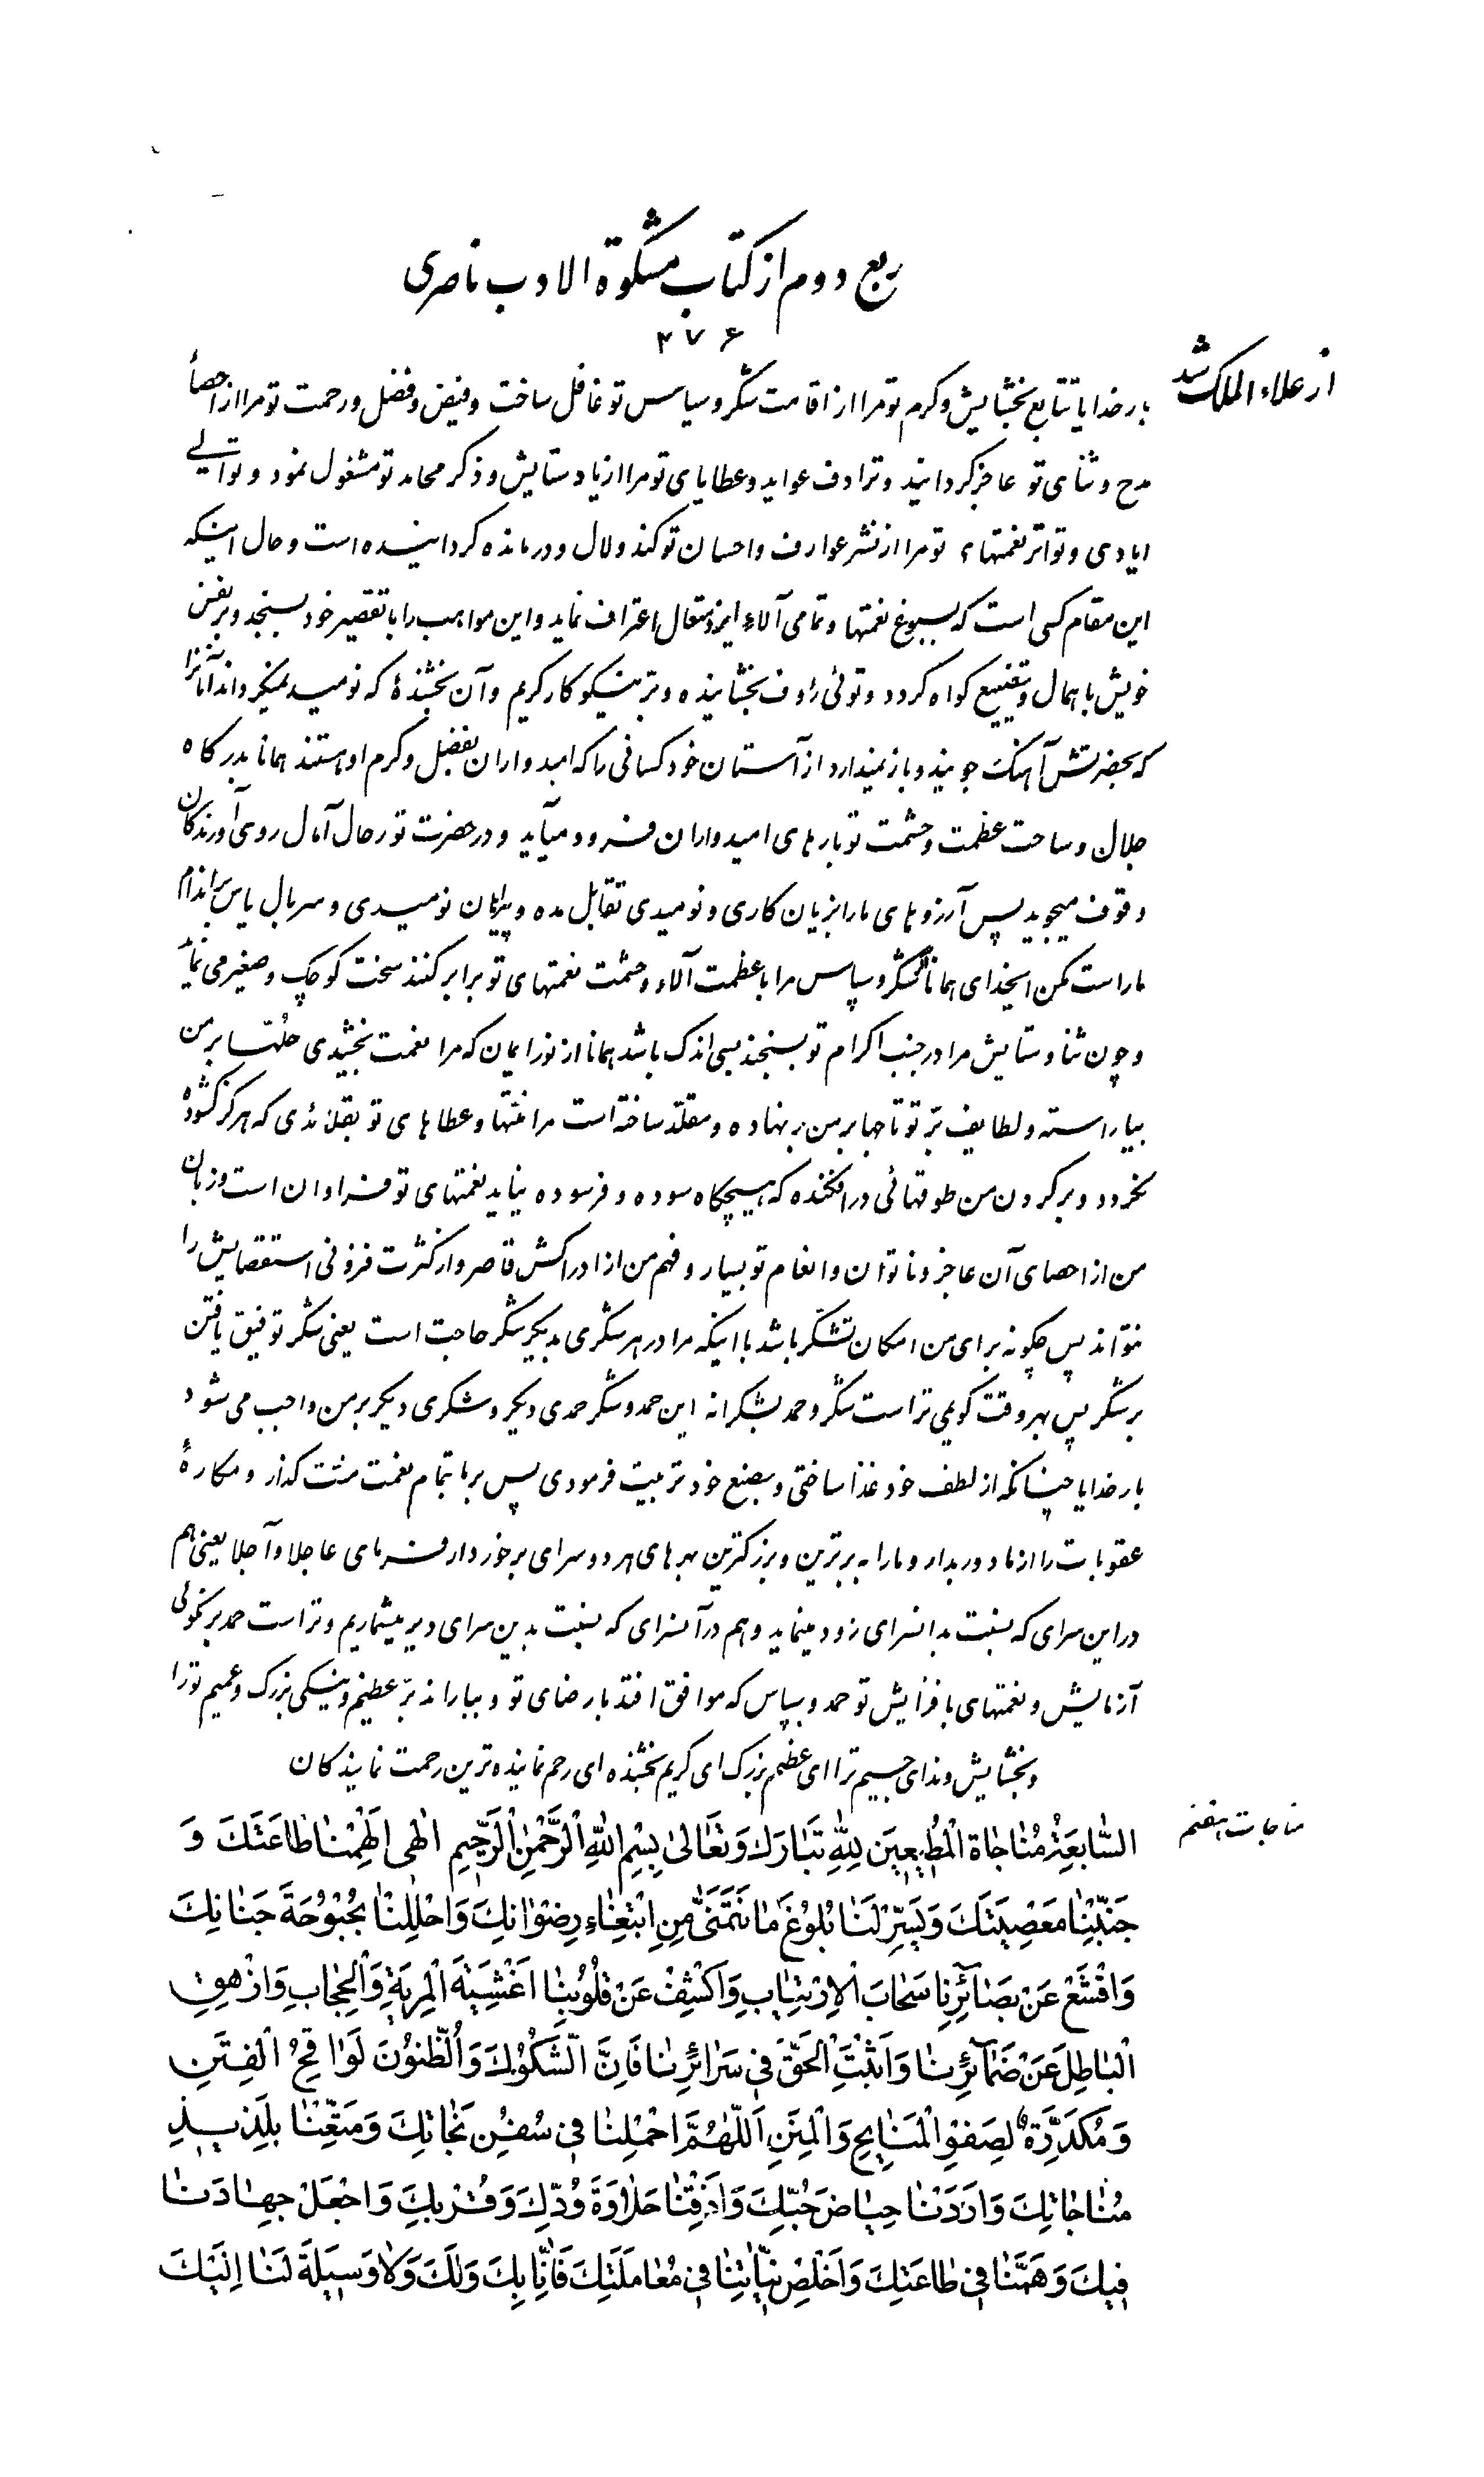 ربع دوم از کتاب مشکوة الادب ناصری
۲۷۶
از علاء الملک شد
بار خدایا تتابع بخشایش و کرم تو مرا از اقامت شکر و سپاس تو غافل ساخت و فیض و فضل و رحمت تو مرا از احصأ
مدح و ثنای تو عاجز گردانید و ترادف عواید و عطایای تو مرا از یاد ستایش و ذکر محامد تو مشغول نمود و توالی
ایادی و تواتر نعمتهای تو مرا از نشر عوارف و احسان تو کند و لال و درمانده گردانیده است و حال اینکه
این مقام کسی است که بسبوغ نعمتها و تمامی آلاء ایزد متعال اعتراف نماید و این مواهب را با تقصیر خود بسنجد و بر نفس
خویش باهمال و تضییع گواه گردد و توئی رؤف بخشاینده و بر نیکوکار کریم و آن بخشندهٔ که نومید نمیگرداند آنانرا
که بحضرتش آهنگ جویند و باز نمیدارد از آستان خود کسانی را که امیدواران بفضل و کرم او هستند همانا بدرگاه
جلال و ساحت عظمت و حشمت تو بارهای امیدواران فرود میآید و در حضرت تو رحال آمال روی آورندگان
وقوف میجوید پس آرزوهای ما را بزیان کاری و نومیدی تقابل مده و پیراهن نومیدی و سربال یاس بر اندام
ما راست مکن ایخدای همانا شکر و سپاس مرا با عظمت آلاء و حشمت نعمتهای تو برابر کنند سخت کوچک و صغیر می نماید
و چون ثنا و ستایش مرا در جنب اکرام تو بسنجند بسی اندک باشد همانا از نور ایمان که مرا نعمت بخشیدی حلّتها بر من
بیاراسته و لطایف برّ تو تاجها بر من بر نهاده و مقلّد ساخته است مرا منتها و عطاهای تو بقلائدی که هرگز گشوده
نگردد و بر گردن من طوقهائی در افکنده که هیچگاه سوده و فرسوده نیاید نعمتهای تو فراوان است و زبان
من از احصای آن عاجز و ناتوان و انعام تو بسیار و فهم من از ادراکش قاصر و از کثرت فزونی استقصایش را
نتواند پس چگونه برای من امکان تشکّر باشد با اینکه مرا در هر شکری بدیگر شکر حاجت است یعنی شکر توفیق یافتن
بر شکر پس بهر وقت گویم تراست شکر و حمد بشکرانه این حمد و شکر حمدی دیگر و شکری دیگر بر من واجب می شود
بار خدایا چنانکه از لطف خود غذا ساختی و بصنع خود تربیت فرمودی پس بر ما بتمام نعمت منّت گذار و مکارهٔ
عقوبات را از ما دور بدار و ما را به برترین و بزرگترین بهرهای هر دو سرای برخوردار فرمای عاجلا و آجلا یعنی هم
در این سرای که بنسبت بدانسرای زود مینماید و هم در آنسرای که بنسبت بدین سرای دیر میشماریم و تراست حمد بر نکوئی
آزمایش و نعمتهای با فزایش تو حمد و سپاس که موافق افتد با رضای تو و بباراند برّ عظیم و نیکی بزرگ و عمیم ترا
و بخشایش و ندای جسیم ترا ای عظیم بزرگ ای کریم بخشنده ای رحم نماینده ترین رحمت نمایندگان
مناجات هفتم
السَّابِعَةُ مُنَاجَاةُ الْمُطِيعِينَ لِلّٰهِ تَبَارَكَ وَتَعَالىٰ بِسْمِ اللّٰهِ الرَّحْمٰنِ الرَّحِيمِ الٰهِى اَلْهِمْنَا طَاعَتَكَ وَ
جَنِّبْنَا مَعْصِيَتَكَ وَيَسِّرْ لَنَا بُلُوغَ مَا نَتَمَنّىٰ مِنِ ابْتِغَاءِ رِضْوَانِكَ وَاحْلِلْنَا بُحْبُوحَةَ جَنَانِكَ
وَاقْشَعْ عَنْ بَصَائِرِنَا سَحَابَ الْاِرْتِيَابِ وَاكْشِفْ عَنْ قُلُوبِنَا اَغْشِيَةَ الْمِرْيَةِ وَالْحِجَابِ وَازْهِقِ
الْبَاطِلَ عَنْ ضَمَآئِرِنَا وَاَثْبِتِ الْحَقَّ فِى سَرَائِرِنَا فَاِنَّ الشُّكُوكَ وَالظُّنُونَ لَوَاقِحُ الْفِتَنِ
وَمُكَدِّرَةٌ لِصَفْوِ الْمَنَايِحِ وَالْمِنَنِ اَللّٰهُمَّ احْمِلْنَا فِى سُفُنِ نَجَاتِكَ وَمَتِّعْنَا بِلَذِيذِ
مُنَاجَاتِكَ وَاَرِدْنَا حِيَاضَ حُبِّكَ وَاَذِقْنَا حَلَاوَةَ وُدِّكَ وَقُرْبِكَ وَاجْعَلْ جِهَادَنَا
فِيكَ وَهَمَّنَا فِى طَاعَتِكَ وَاَخْلِصْ نِيَّاتِنَا فِى مُعَامَلَتِكَ فَاِنَّا بِكَ وَلَكَ وَلَا وَسِيلَةَ لَنَا اِلَيْكَ